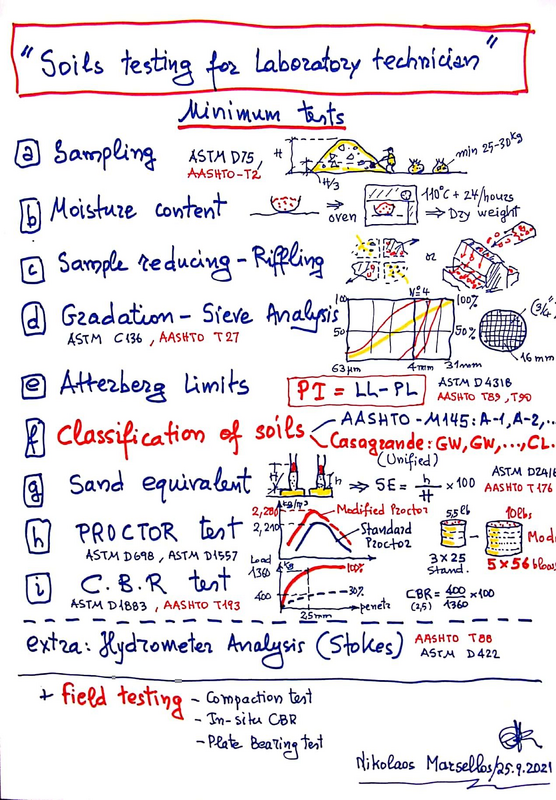 "Soils testing for Laboratory technician"
Minimum tests
a Sampling ASTM D75, AASHTO-T2 H H/3 min 25-30kg
b Moisture content ⇒ oven 110°C + 24/hours ⇒ Dry weight
c Sample reducing - Riffling or
d Gradation - Sieve Analysis
ASTM C136, AASHTO T27
100 50 N=4 100% 50% 63μm 4mm 31mm (3/4" 16mm
e Atterberg Limits PI = LL-PL ASTM D4318
AASHTO T89, T90
f Classification of soils AASHTO-M145: A-1, A-2,..
Casagrande: GW, GW,...,CL.
(Unified)
g Sand equivalent H ⇒ SE = h/H × 100 ASTM D241
AASHTO T176
h PROCTOR test
ASTM D698, ASTM D1557
kg/m³ 2,280 2,210 Modified Proctor
Standard Proctor
5.5lb 10lbs
3×25 Stand. - Mod
5×56 blows
i C.B.R test
ASTM D1883, AASHTO T193
Load kg 1360 400 100% 30% penetr 2.5mm
CBR = 400/1360 ×100
(2,5)
extra: Hydrometer Analysis (Stokes) AASHTO T88
ASTM D422
+ field testing - Compaction test
- In-situ CBR
- Plate Bearing test
Nikolaos Marsellos/25.9.2021